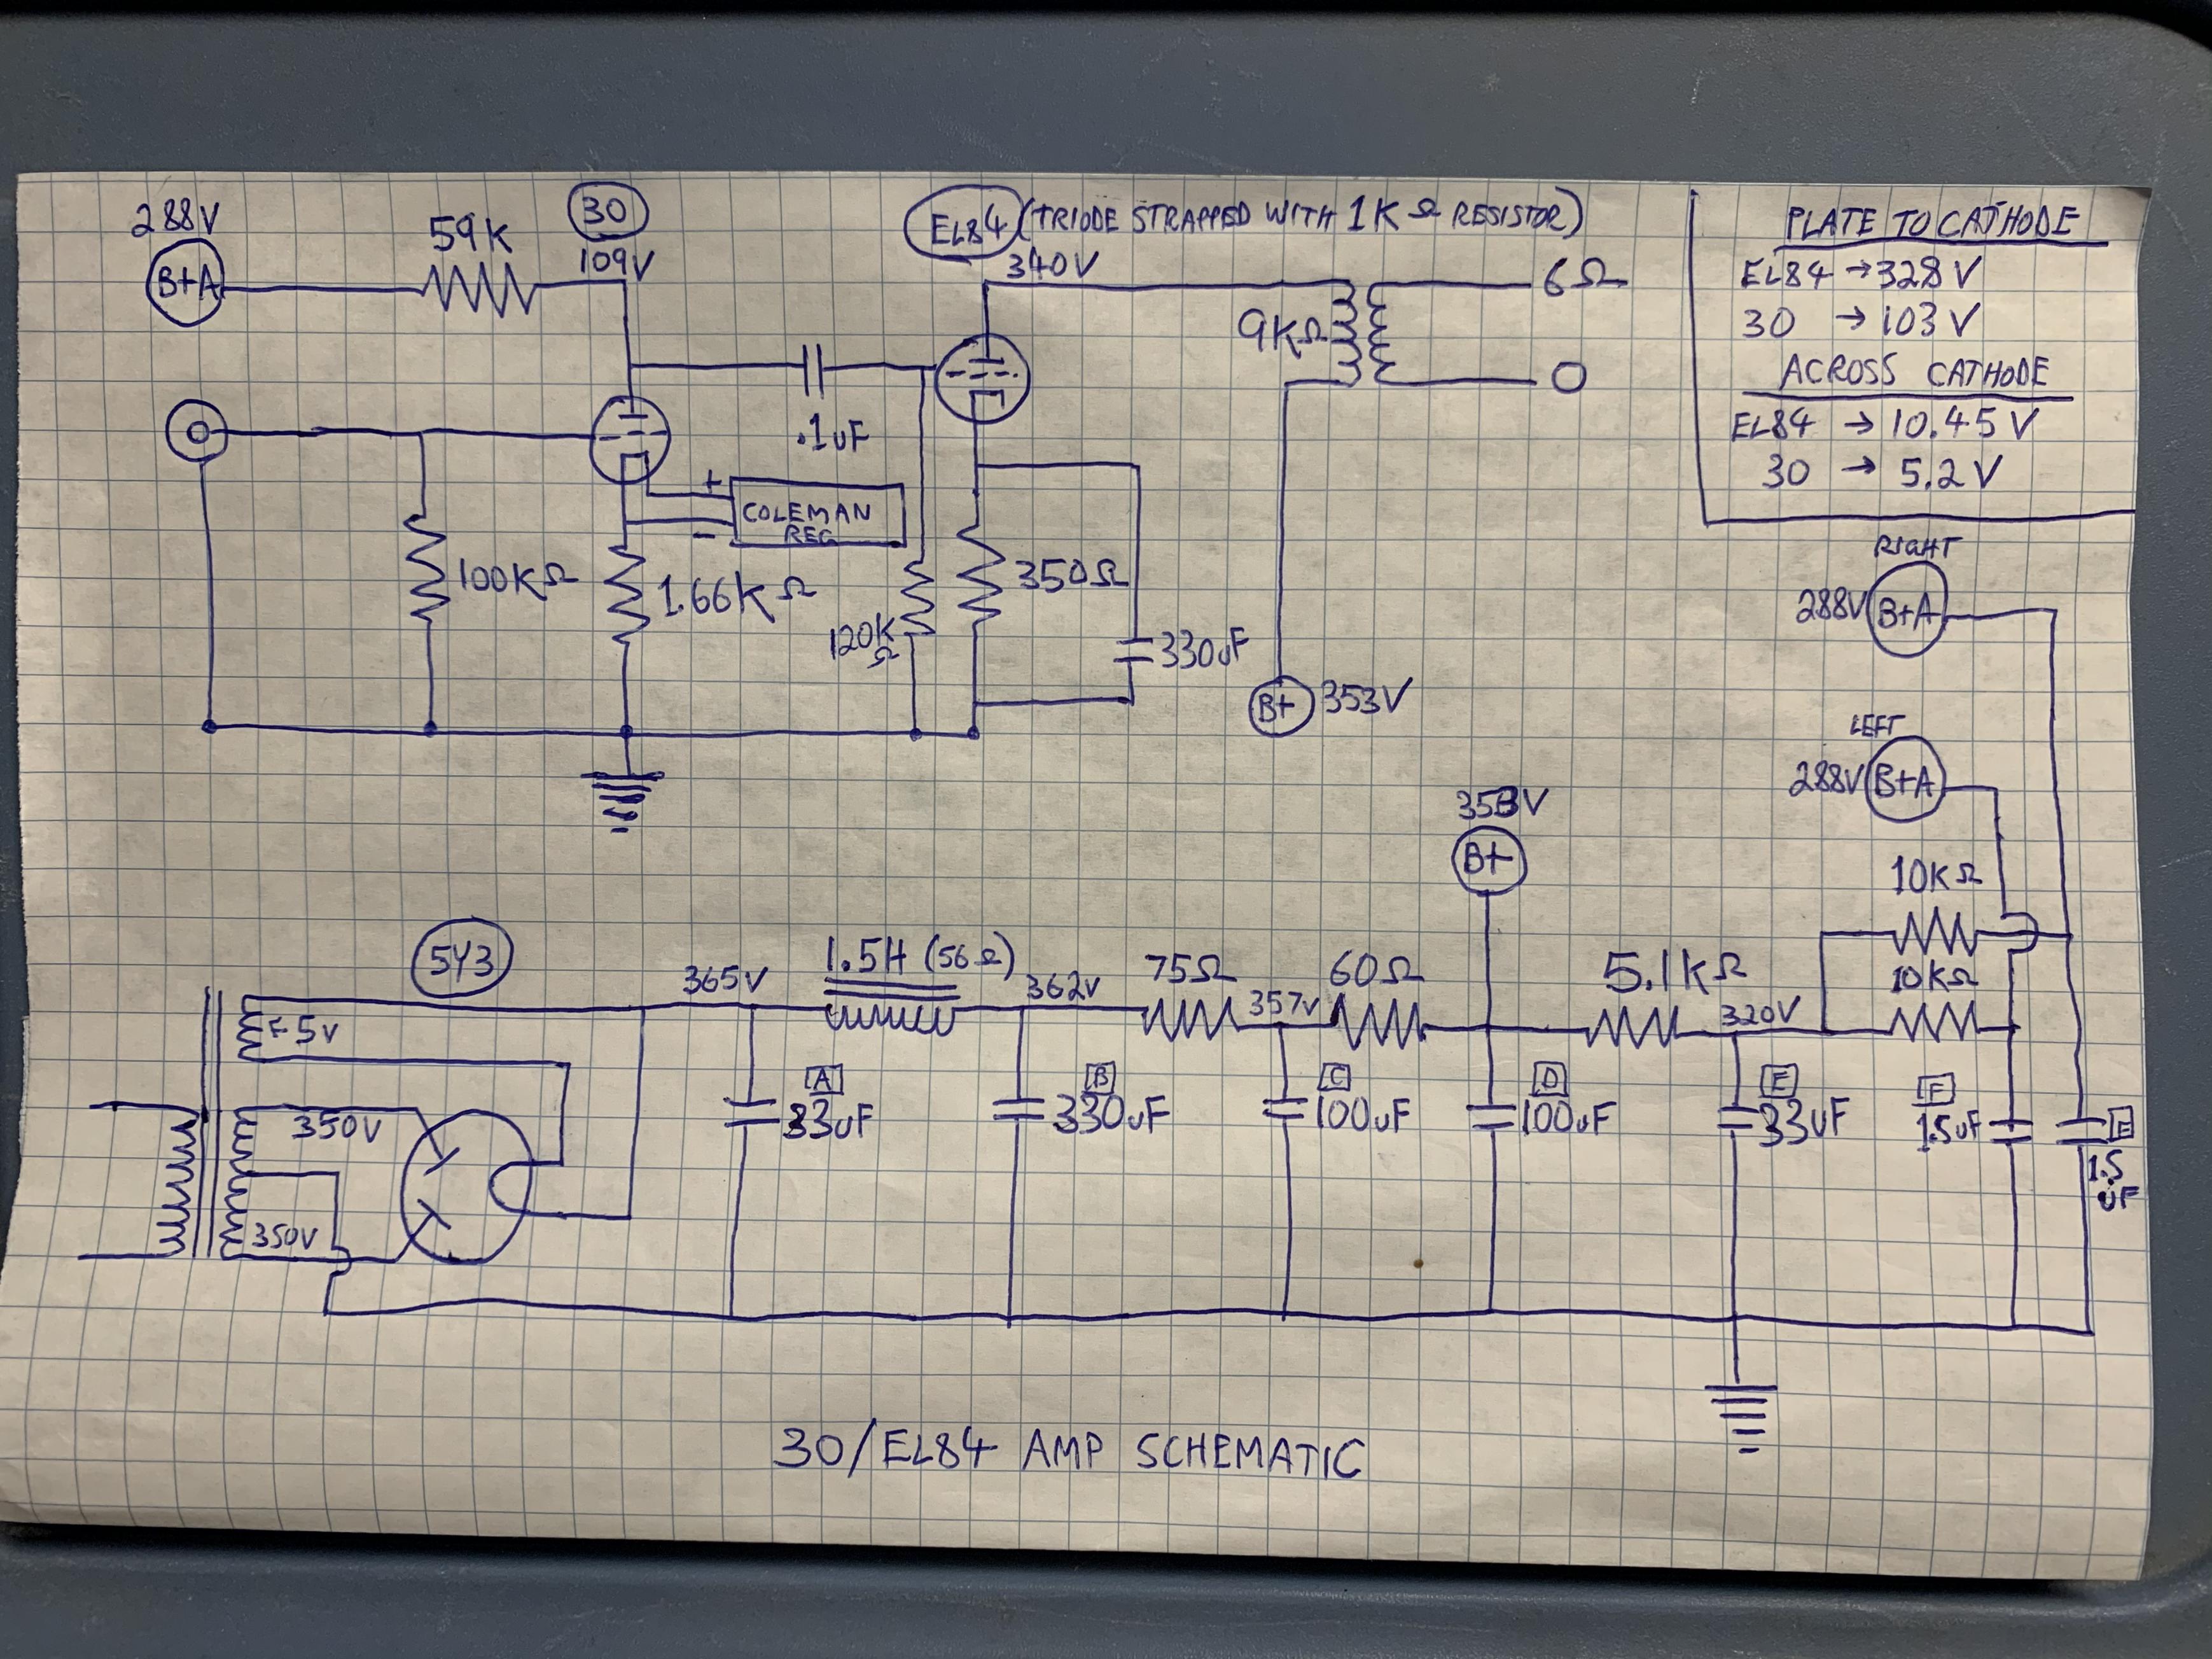 288V
B+A
59K
30
109V
EL84 (TRIODE STRAPPED WITH 1K Ω RESISTOR)
340V
9KΩ
6Ω
O
.1uF
+
COLEMAN
REG
-
100KΩ
1.66KΩ
120K
Ω
350Ω
330uF
B+ 353V
PLATE TO CATHODE
EL84 → 328V
30 → 103V
ACROSS CATHODE
EL84 → 10.45V
30 → 5.2V
RIGHT
288V B+A
LEFT
288V B+A
353V
B+
10KΩ
10KΩ
5Y3
365V
1.5H (56Ω)
362V
75Ω
357V
60Ω
5.1KΩ
320V
5V
350V
350V
A
33uF
B
330uF
C
100uF
D
100uF
E
33uF
F
1.5uF
1.5
uF
30/EL84 AMP SCHEMATIC